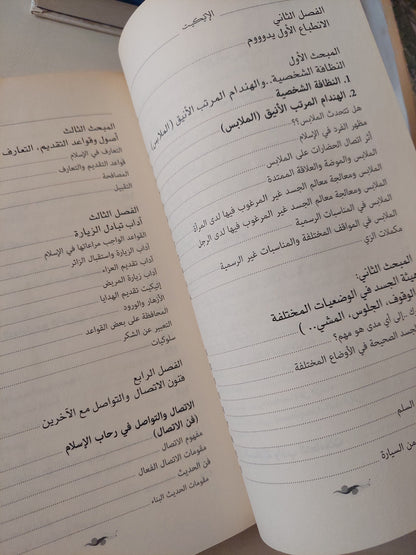 الإتيكيت
الفصل الثاني
الانطباع الأول يدوووم
المبحث الأول
النظافة الشخصية.. والهندام المرتب الأنيق (الملابس)
1. النظافة الشخصية
2. الهندام المرتب الأنيق (الملابس)
هل تتحدث الملابس؟؟
مظهر الفرد في الإسلام
أثر اتصال الحضارات على الملابس
الملابس والموضة والعلاقة الممتدة
الملابس ومعالجة معالم الجسد غير المرغوب فيها لدى المرأة
الملابس ومعالجة معالم الجسد غير المرغوب فيها لدى الرجل
الملابس في المناسبات الرسمية
الملابس في المواقف المختلفة والمناسبات غير الرسمية
مكملات الزي
المبحث الثاني:
هيئة الجسد في الوضعيات المختلفة
الوقوف، الجلوس، المشي.. )
إلى أي مدى هو مهم؟
الصحيحة في الأوضاع المختلفة
السلم
من السيارة
المبحث الثالث
أصول وقواعد التقديم، التعارف
التعارف في الإسلام
قواعد التقديم والتعارف
المصافحة
التقبيل
الفصل الثالث
آداب تبادل الزيارة
القواعد الواجب مراعاتها في الإسلام
آداب الزيارة واستقبال الزائر
آداب تقديم العزاء
آداب زيارة المريض
إتيكيت تقديم الهدايا
الأزهار والورود
المحافظة على بعض القواعد
التعبير عن الشكر
سلوكيات
الفصل الرابع
فنون الاتصال والتواصل مع الآخرين
الاتصال والتواصل في رحاب الإسلام
(فن الاتصال)
مفهوم الاتصال
مقومات الاتصال الفعال
فن الحديث
مقومات الحديث البناء